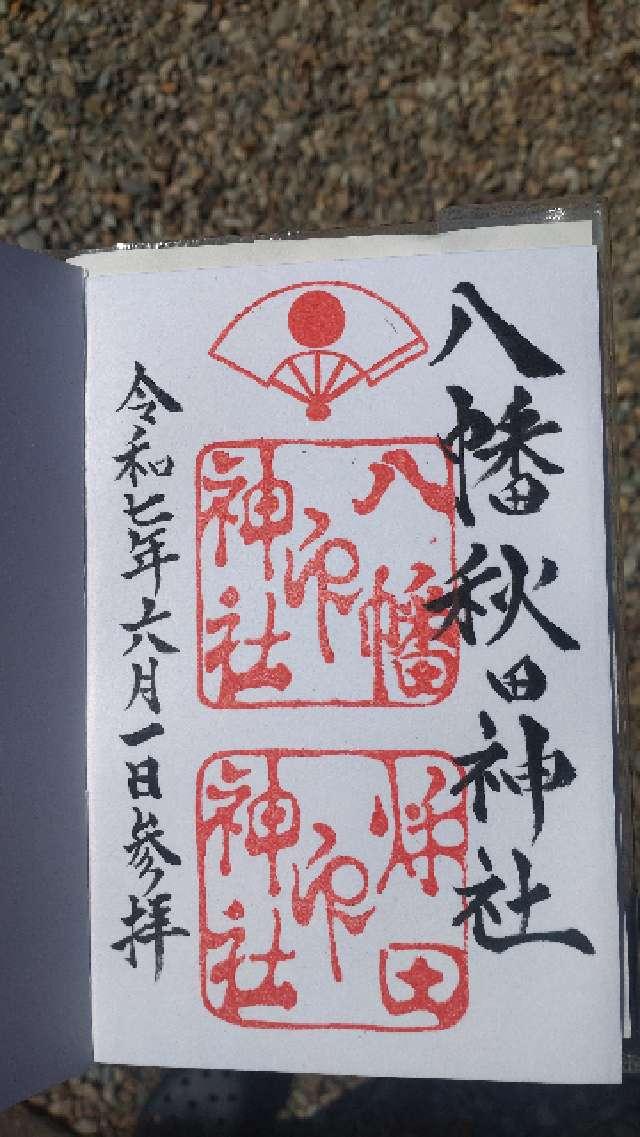 八幡秋田神社
八幡
神社
印
秌田
神社
印
令和七年六月一日参拝